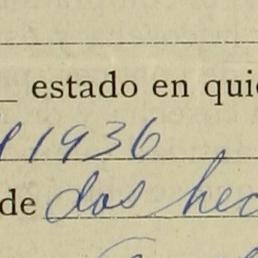 estado en qui
1936
de dos hec